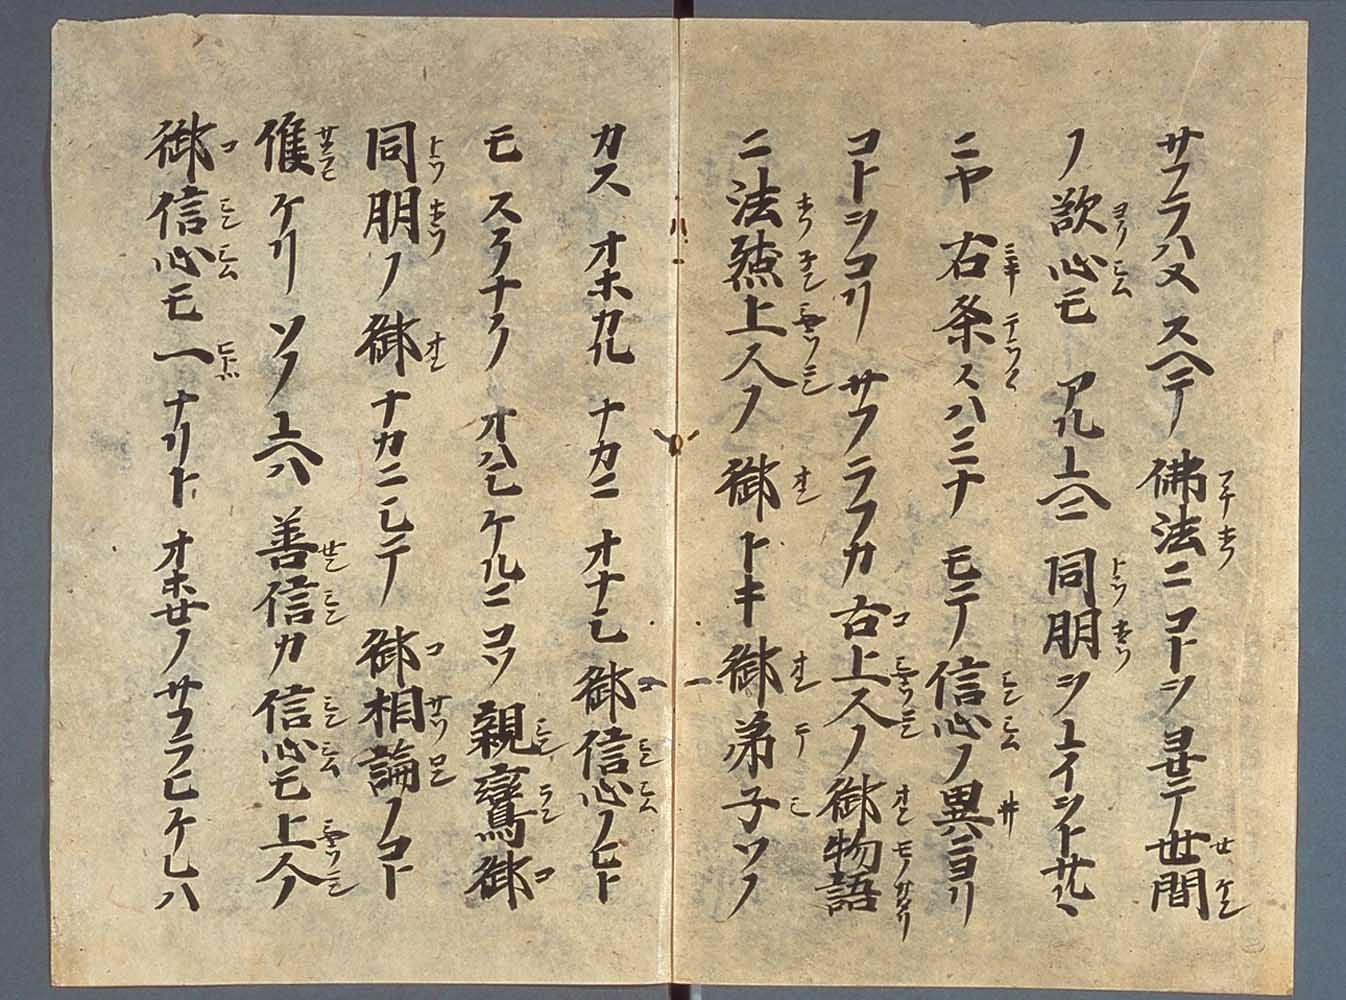 サフラハヌ スヘテ 佛法ニコトヲヨセテ世間
ノ欲心モ アルユヘニ 同朋ヲユイヲトサルヽ
ニヤ 右条々ハミナ モテ信心ノ異ニヨリ
コトヲコリ サフラフカ 古上人ノ御物語
ニ法然上人ノ 御トキ 御弟子ソノ
カス オホカル ナカニ オナシ 御信心ノヒト
モ スクナク オハシケルニコソ 親鸞御
同朋ノ 御ナカニシテ 御相論ノコト
候ケリ ソノユヘハ 善信カ信心モ上人ノ
御信心モ一ナリト オホセノ サフラヒケレハ